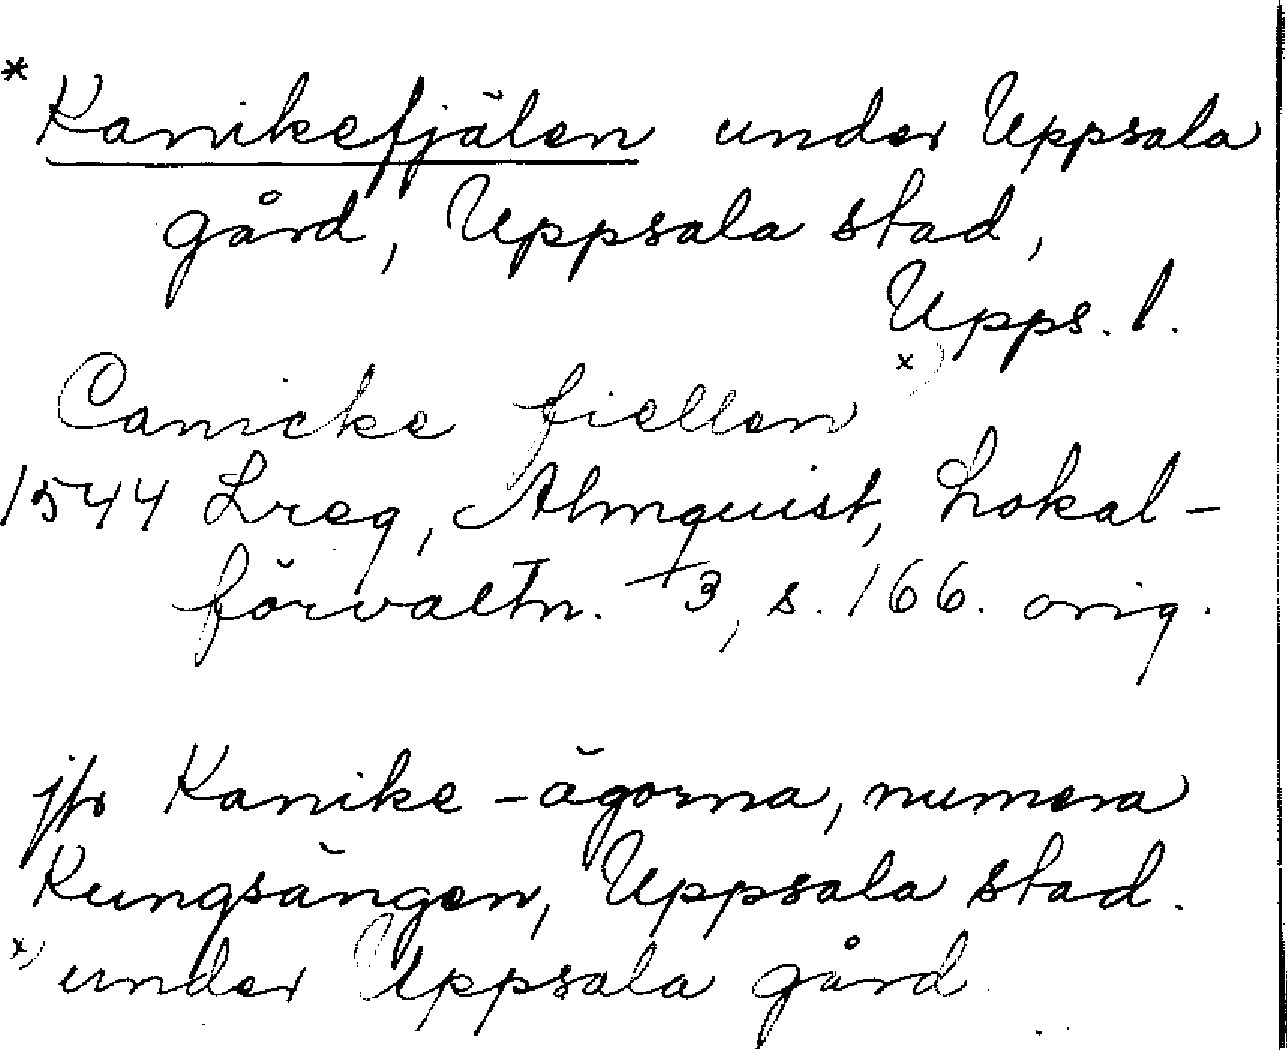 * Kanikefjälen under Uppsala
gård, Uppsala stad,
Upps. l.
Canicke fiellen x)
1544 Lreg, Almquist, Lokal-
förvaltn. 3, s. 166. orig.
jfr Kanike-ägorna, numera
Kungsängen, Uppsala stad.
x) under Uppsala gård